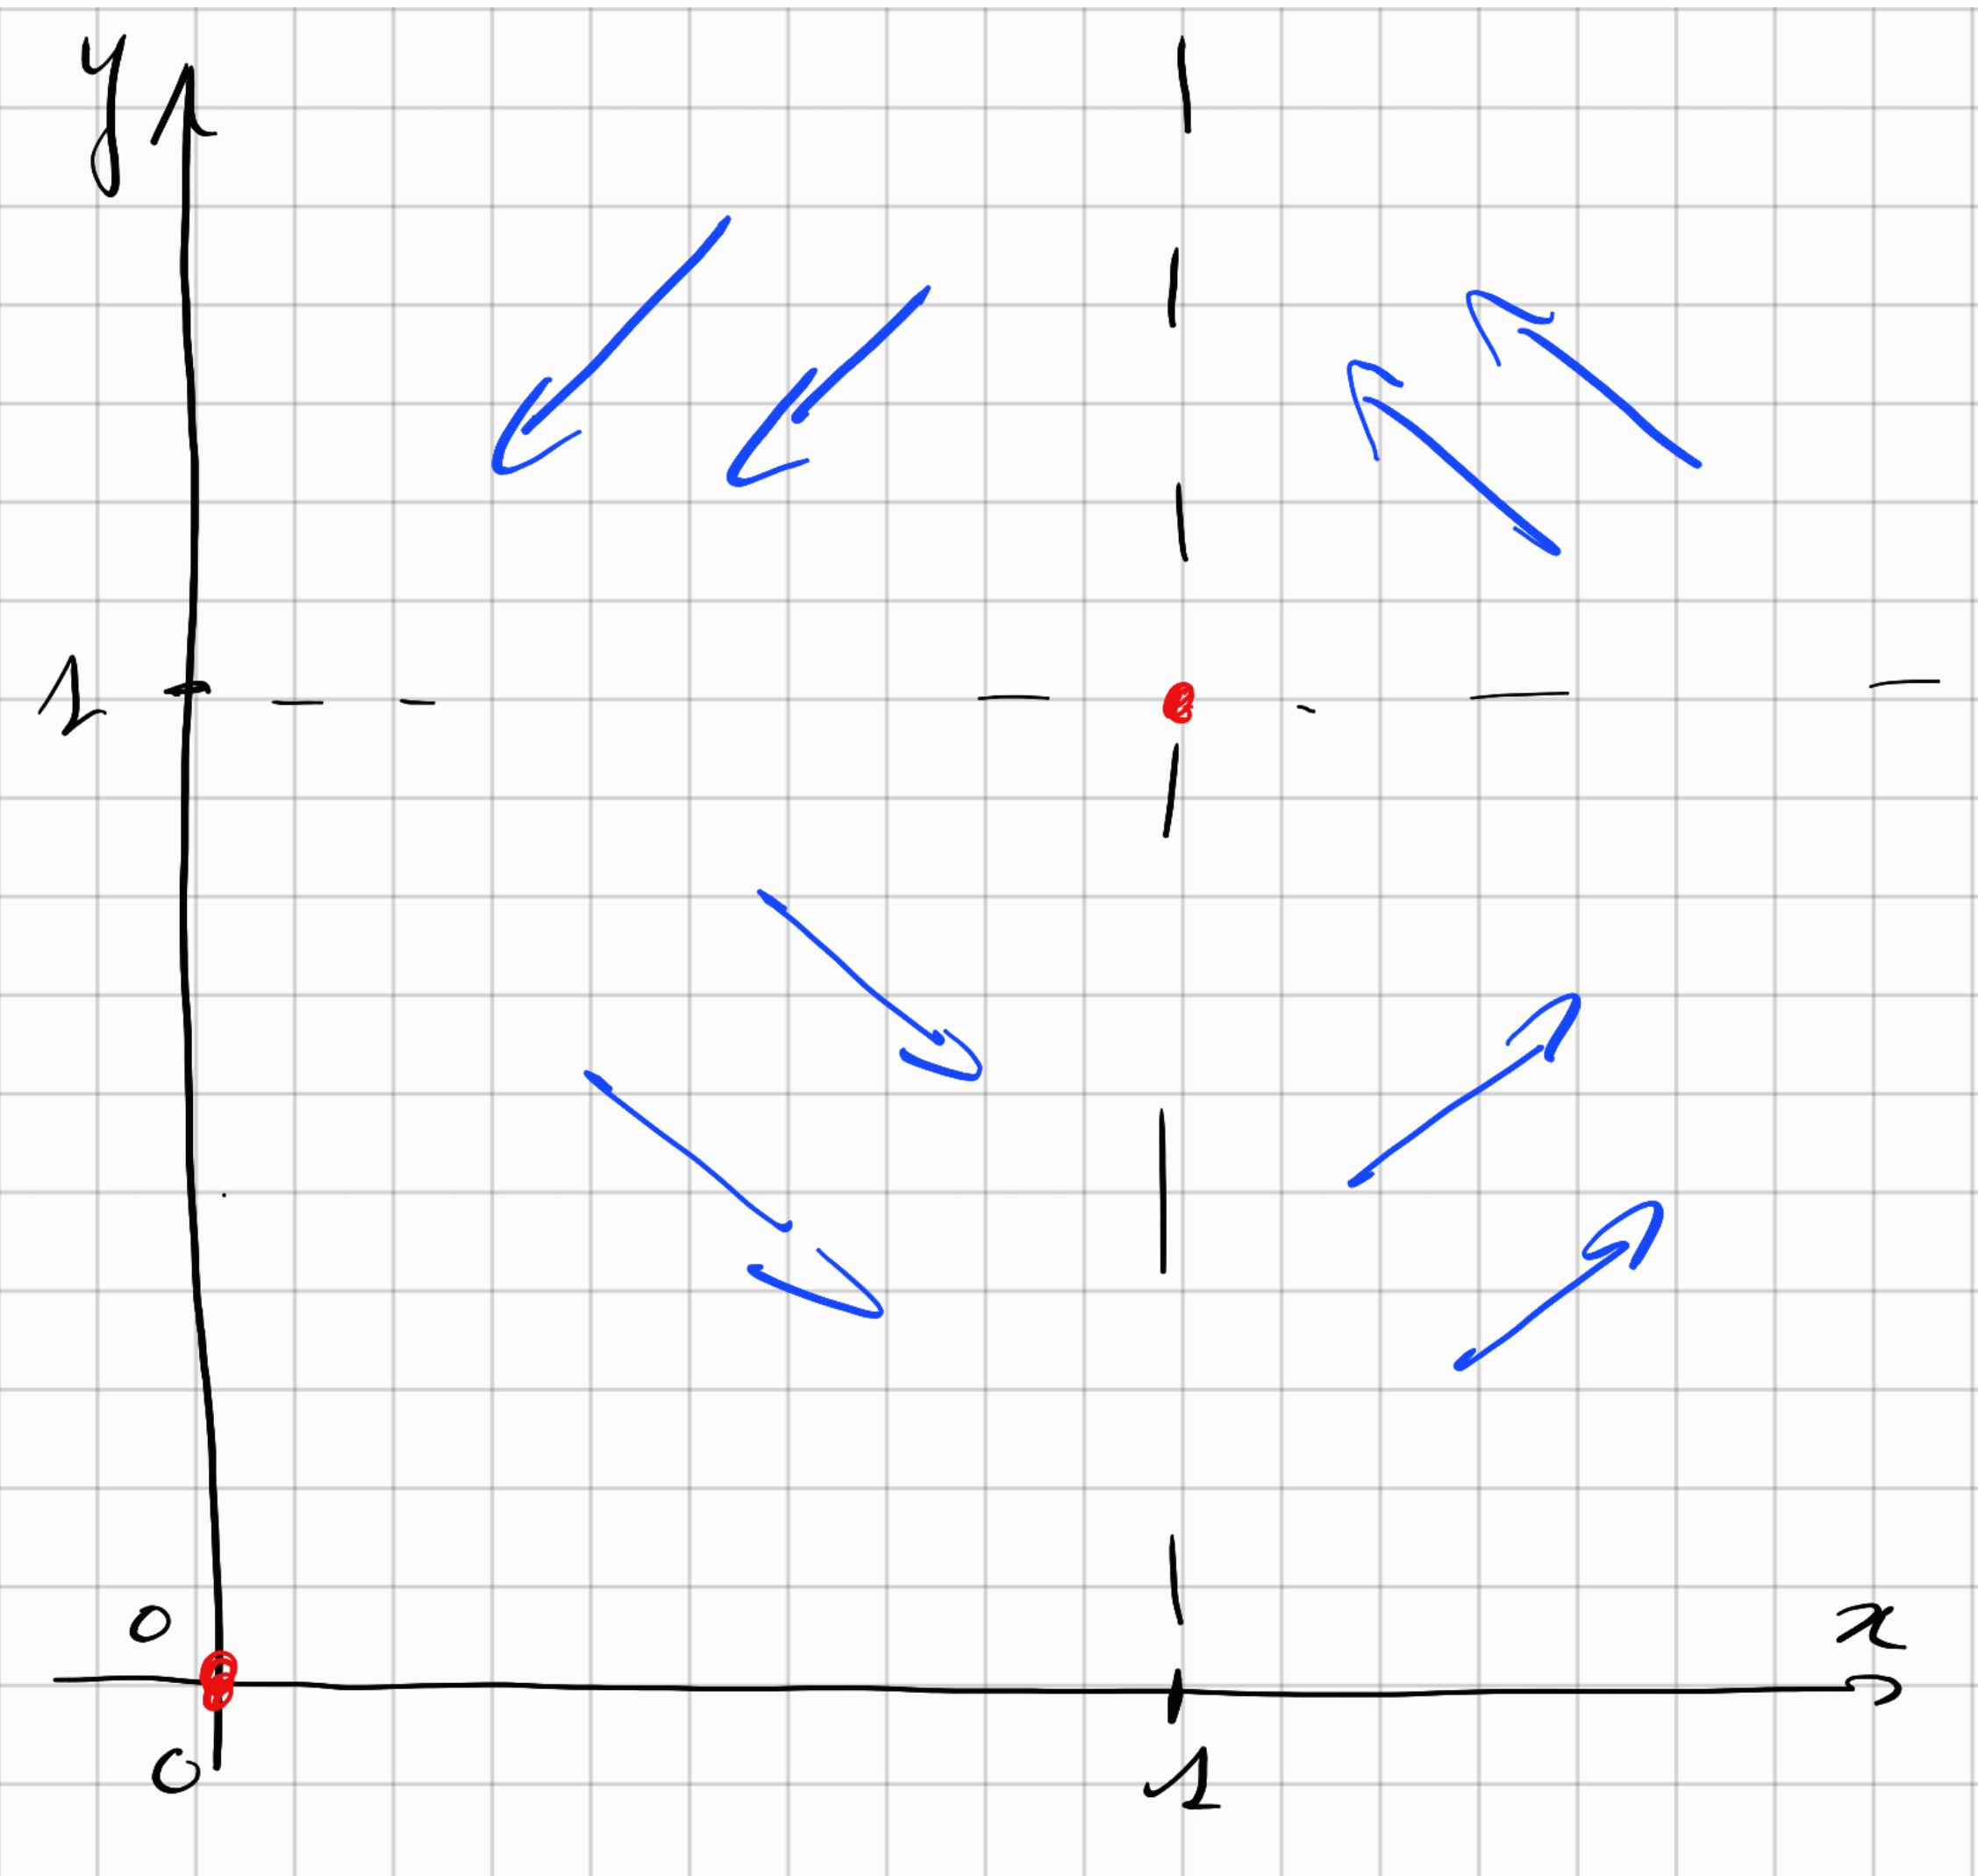 y
1
0
x
0
1